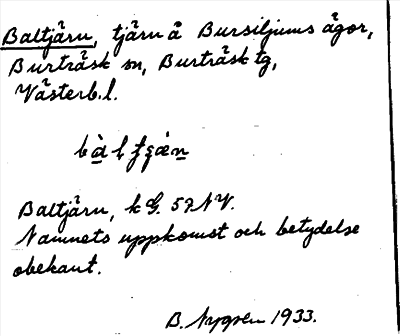 Baltjärn, tjärn å Bursiljums ägor,
Burträsk sn, Burträsk tg,
Västerb. l.
Baltjärn, k G. 57 NV.
Namnets uppkomst och betydelse
obekant.
B. Nygren 1933.